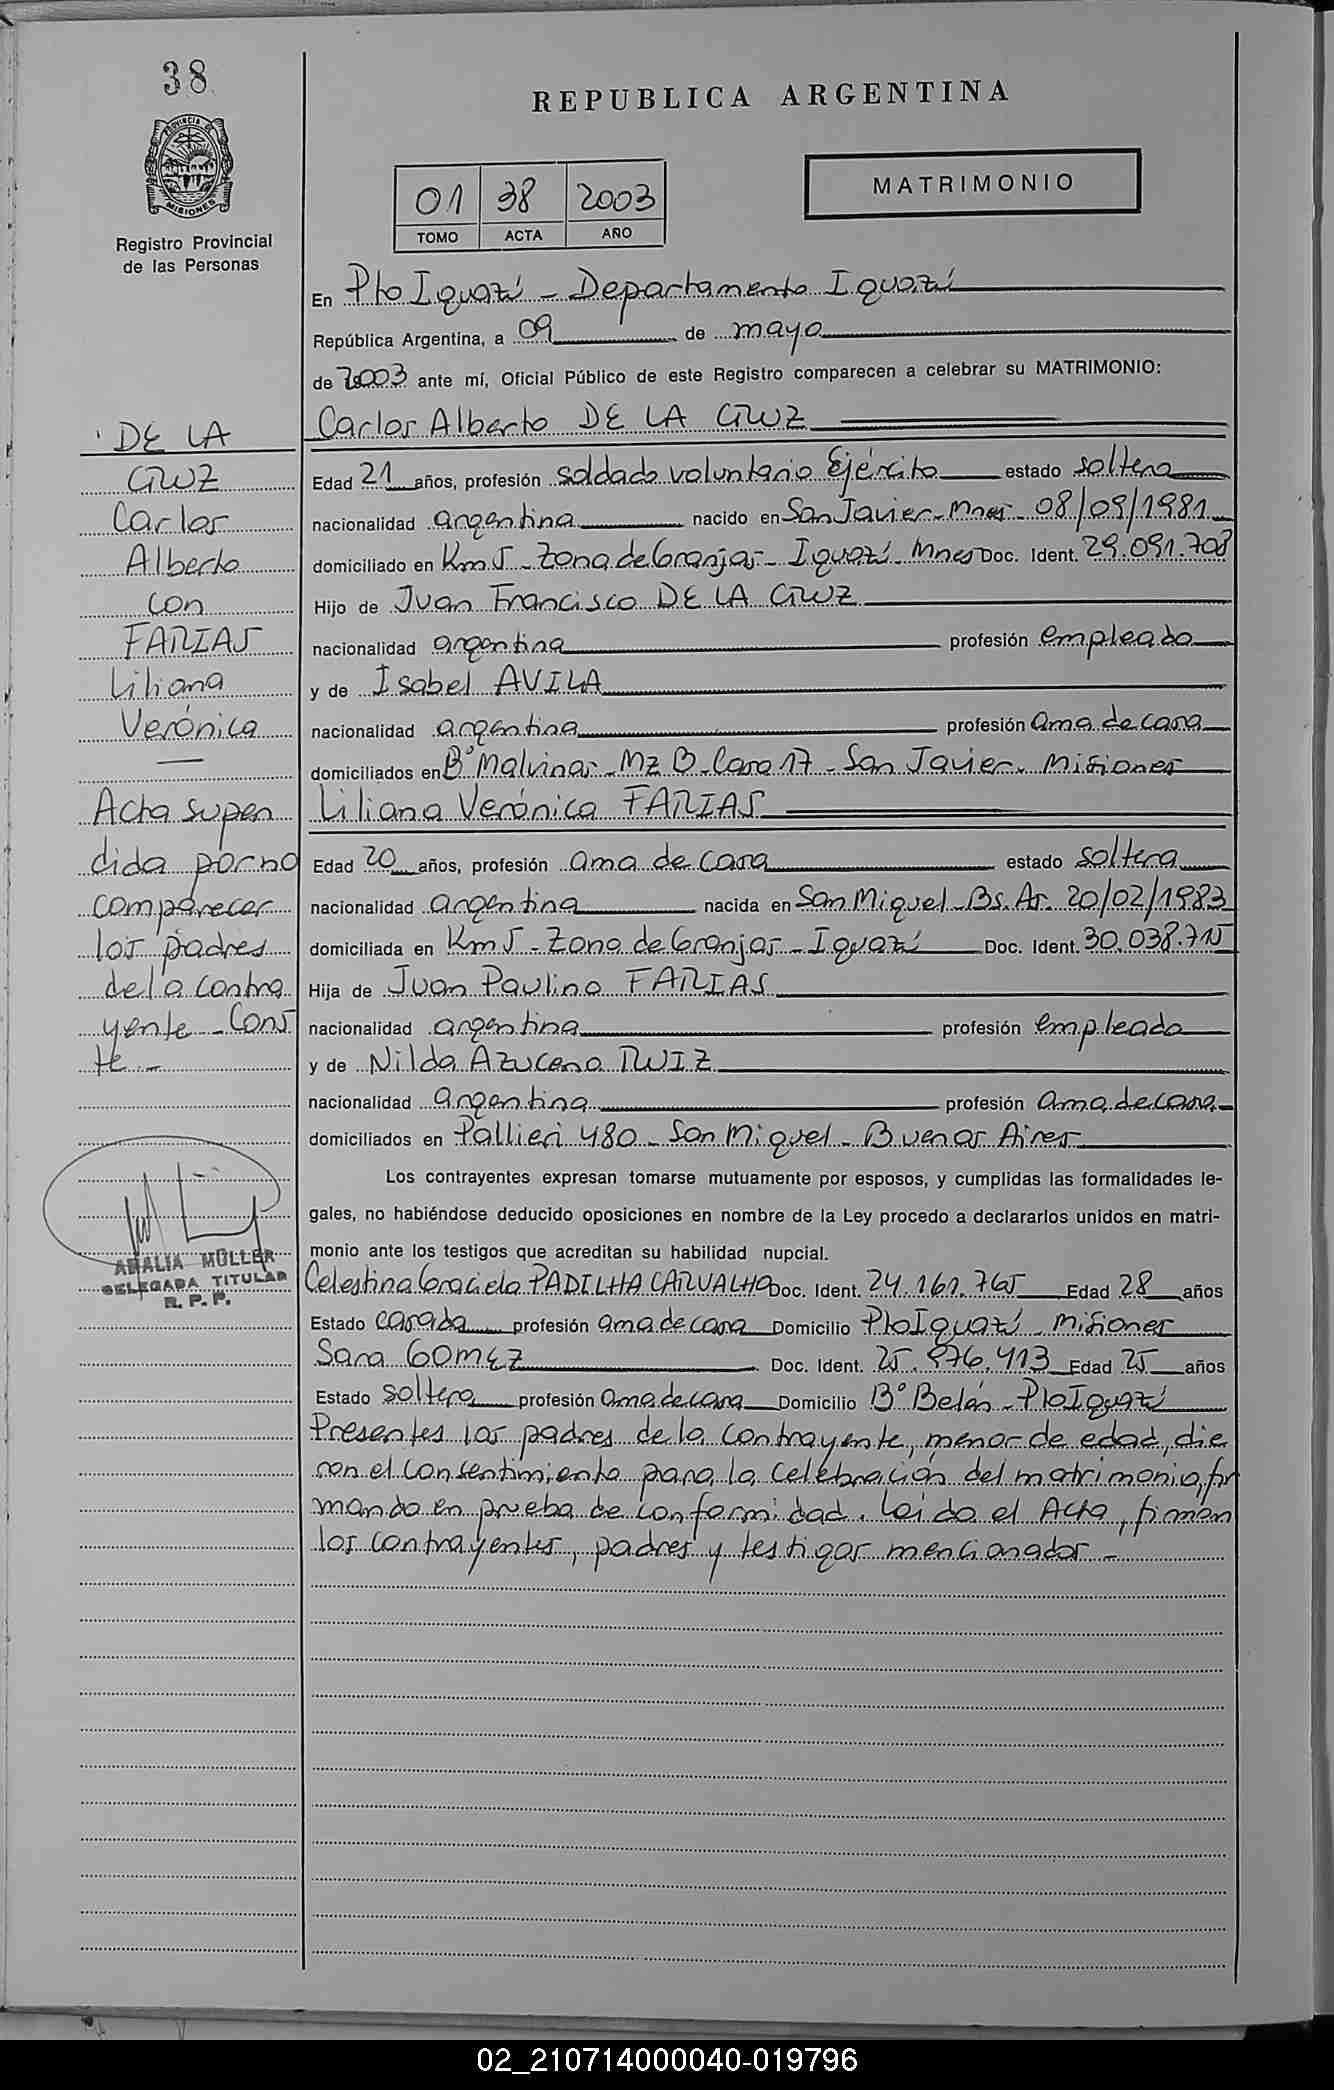 38
PROVINCIA DE MISIONES
Registro Provincial
de las Personas
REPUBLICA ARGENTINA
01 38 2003
TOMO ACTA AÑO
MATRIMONIO
En Pto Iguazú - Departamento Iguazú
República Argentina, a 09 de mayo
de 2003 ante mí, Oficial Público de este Registro comparecen a celebrar su MATRIMONIO:
Carlos Alberto DE LA CRUZ
Edad 21 años, profesión soldado voluntario Ejército estado soltero
nacionalidad argentina nacido en San Javier - Mnes - 08/09/1981
domiciliado en Km 5 - Zona de Granjas - Iguazú - Mnes Doc. Ident. 29.091.708
Hijo de Juan Francisco DE LA CRUZ
nacionalidad argentina profesión empleado
y de Isabel AVILA
nacionalidad argentina profesión ama de casa
domiciliados en B° Malvinas - Mz B - Casa 17 - San Javier - Misiones
Liliana Verónica FARIAS
Edad 20 años, profesión ama de casa estado soltera
nacionalidad argentina nacida en San Miguel - Bs. As. 20/02/1983
domiciliada en Km 5 - Zona de Granjas - Iguazú Doc. Ident. 30.038.715
Hija de Juan Paulino FARIAS
nacionalidad argentina profesión empleado
y de Nilda Azucena RUIZ
nacionalidad argentina profesión ama de casa
domiciliados en Pallieri 480 - San Miguel - Buenos Aires
Los contrayentes expresan tomarse mutuamente por esposos, y cumplidas las formalidades le-
gales, no habiéndose deducido oposiciones en nombre de la Ley procedo a declararlos unidos en matri-
monio ante los testigos que acreditan su habilidad nupcial.
Celestina Graciela PADILHA CARVALHO Doc. Ident. 24.161.765 Edad 28 años
Estado casada profesión ama de casa Domicilio Pto Iguazú - Misiones
Sara GOMEZ Doc. Ident. 25.976.413 Edad 25 años
Estado soltera profesión ama de casa Domicilio B° Belén - Pto Iguazú
Presentes los padres de la contrayente, menor de edad, die
ron el consentimiento para la celebración del matrimonio, fir
mando en prueba de conformidad. Leida el Acta, firman
los contrayentes, padres y testigos mencionados -
DE LA
CRUZ
Carlos
Alberto
con
FARIAS
Liliana
Verónica
Acta supen
dida por no
comparecer
los padres
de la contra
yente - Cons
te -
ADALIA MÜLLER
DELEGADA TITULAR
R. P. P.
02_210714000040-019796